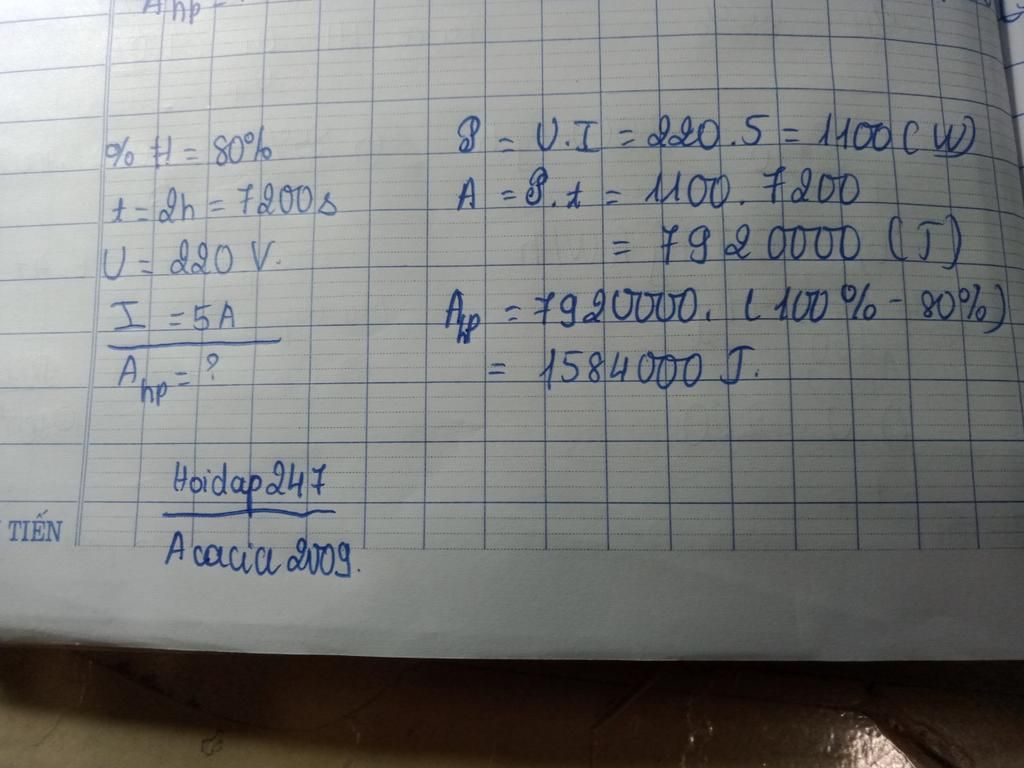 A hp =
% H = 80%
t = 2h = 7200s
U = 220 V.
I = 5A
A hp = ?
P = U.I = 220.5 = 1100 (W)
A = P.t = 1100.7200
= 7920000 (J)
A hp = 7920000. (100% - 80%)
= 1584000 J.
Hoidap247
Acacia 2009.
TIẾN